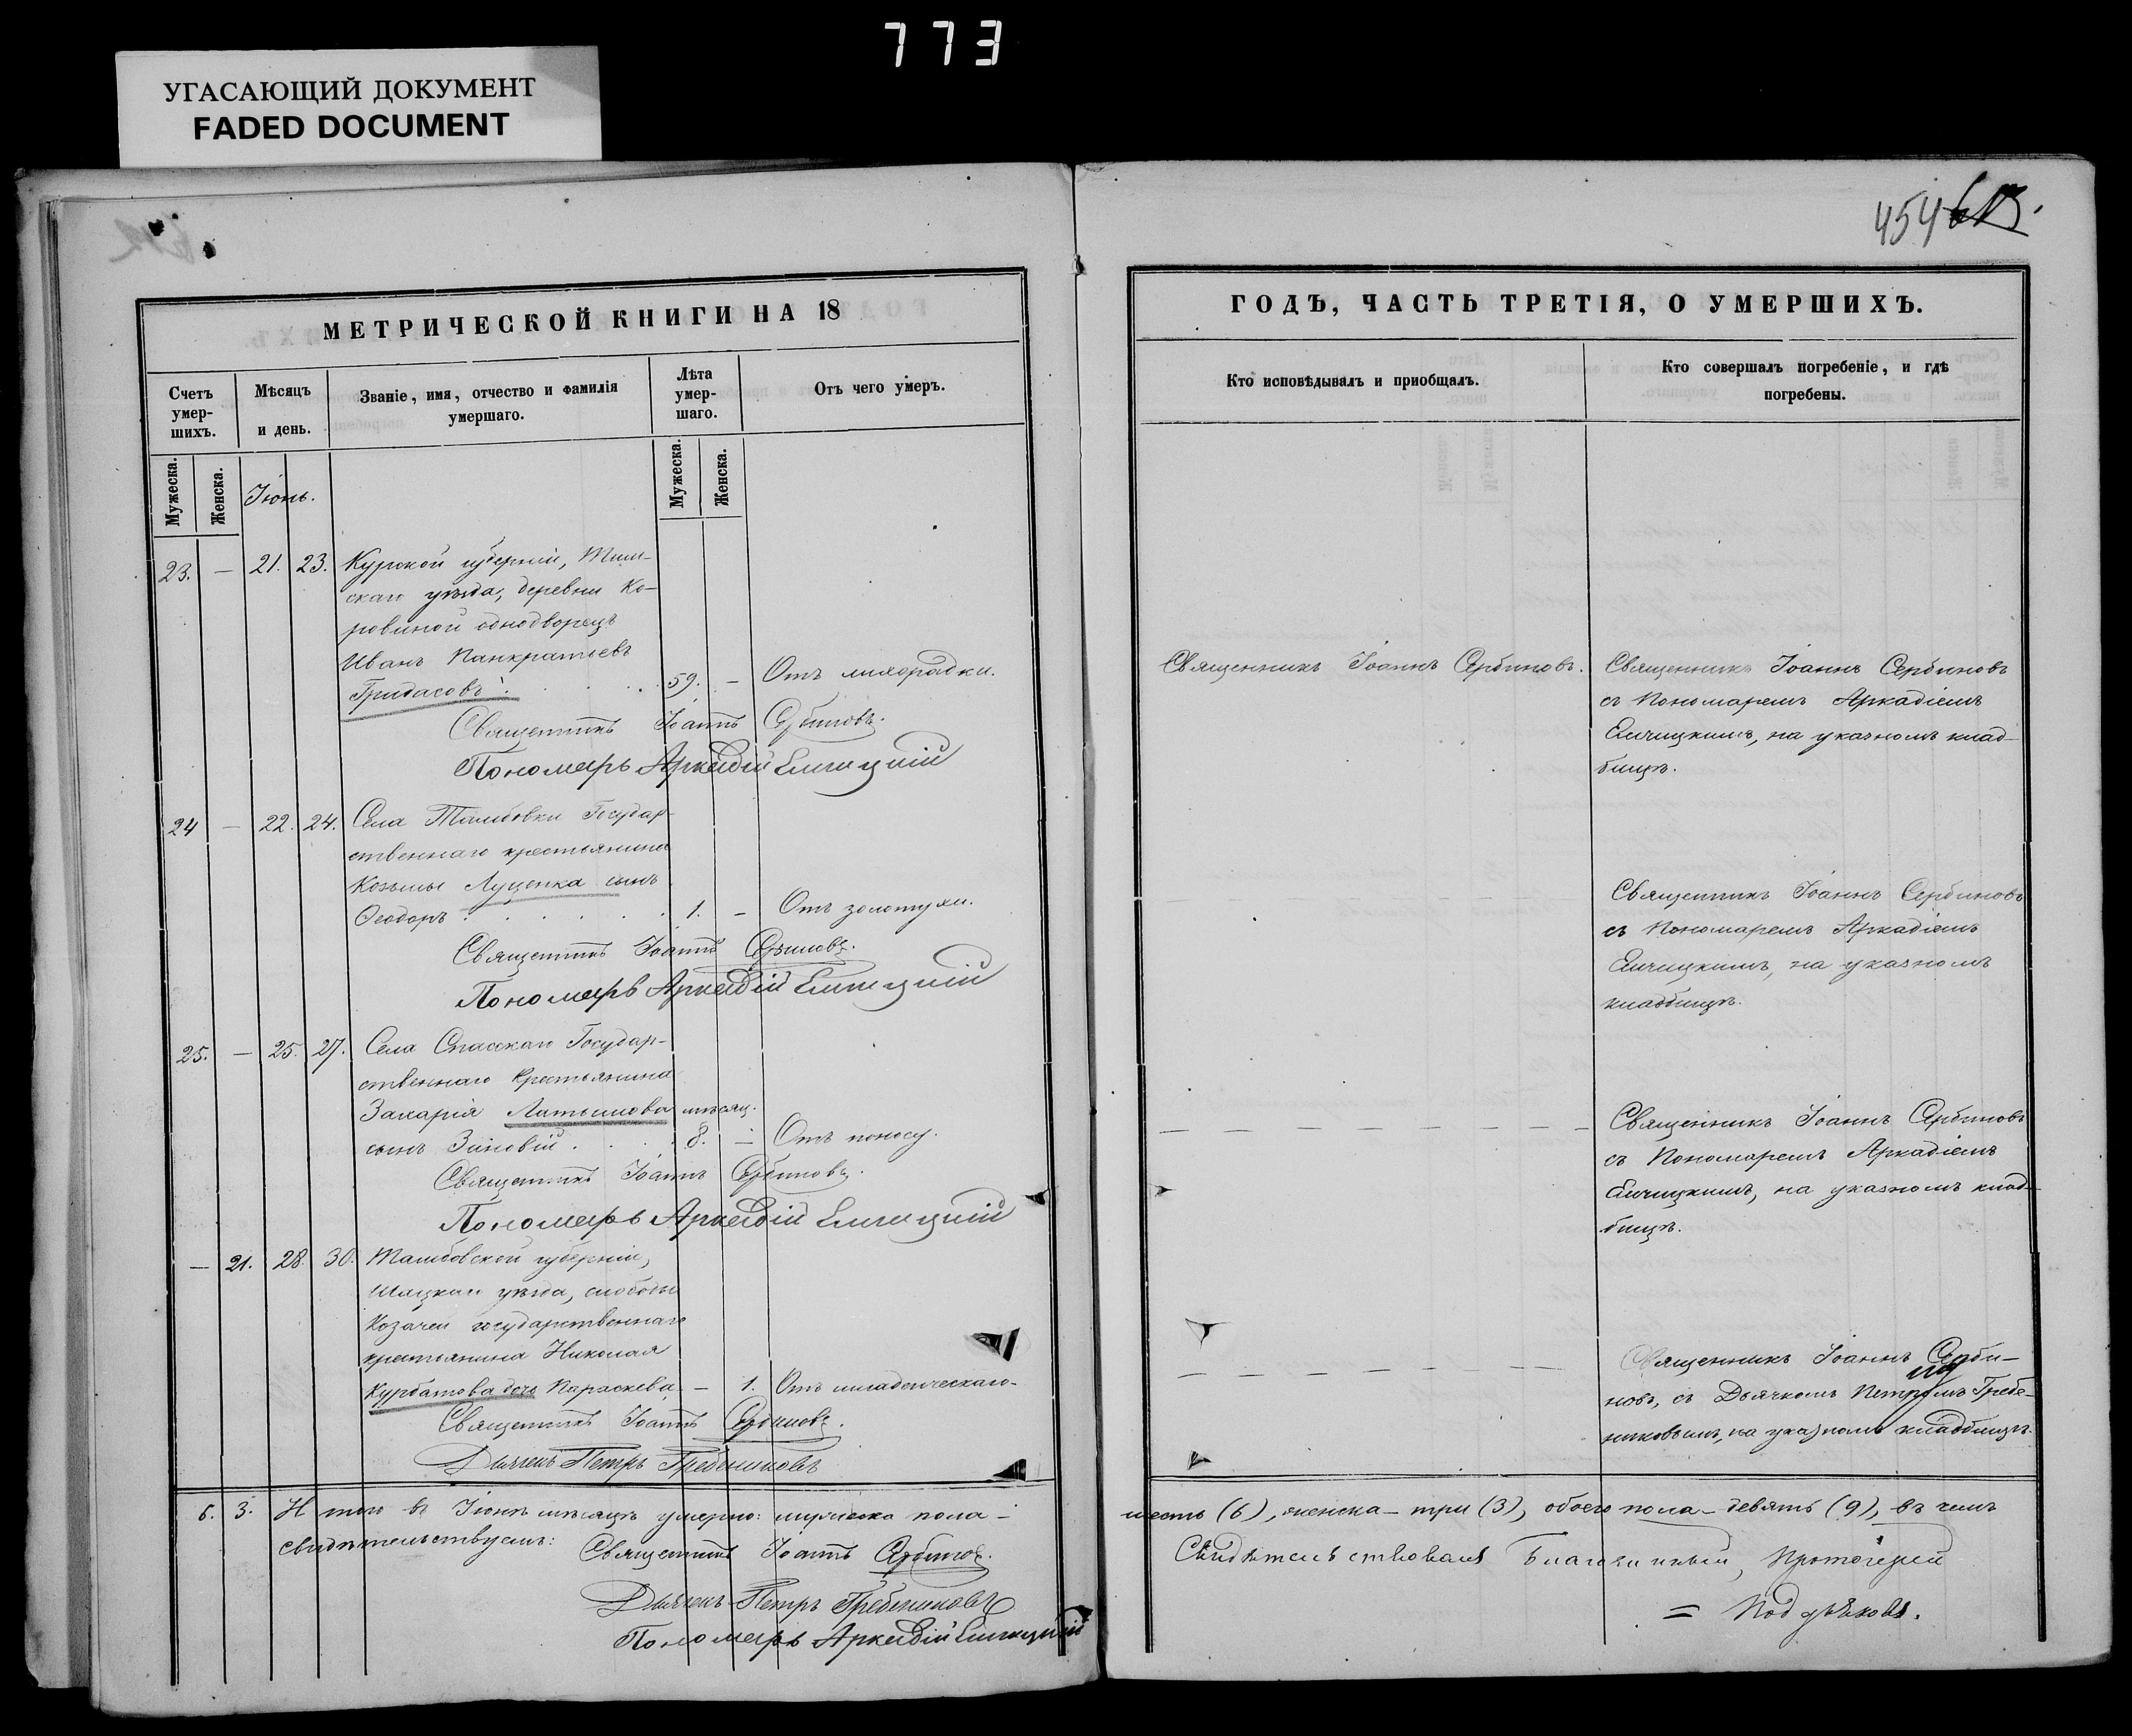 773
УГАСАЮЩИЙ ДОКУМЕНТ
FADED DOCUMENT
454
МЕТРИЧЕСКОЙ КНИГИ НА 18
Счетъ умер-шихъ.
Мѣсяцъ и день.
Званіе, имя, отчество и фамилія умершаго.
Лѣта умер-шаго.
Отъ чего умеръ.
Мужеска.
Женска.
Іюнь.
Мужеска.
Женска.
23. — 21. 23. Курской губерніи, Тим-
скаго уѣзда, деревни Ко-
ровиной однодворецъ
Иванъ Панкратьевъ
Гридасовъ . . . 59. — Отъ лихорадки.
Священникъ Іоаннъ Сербиновъ.
Пономарь Аркадій Елчицкій
24 — 22. 24. Села Тамбовки Государ-
ственнаго крестьянина
Козьмы Луценка сынъ
Ѳеодоръ . . . . . . 1. — Отъ золотухи.
Священникъ Іоаннъ Сербиновъ.
Пономарь Аркадій Елчицкій
25. — 25. 27. Села Спасскаго Государ-
ственнаго крестьянина
Захарія Латышова мѣсяц.
сынъ Зиновій . . . 8. — Отъ поносу.
Священникъ Іоаннъ Сербиновъ.
Пономарь Аркадій Елчицкій
— 21. 28. 30. Тамбовской губерніи,
Шацкаго уѣзда, слободы
Козачей государственнаго
крестьянина Николая
Курбатова дочь Параскева — 1. Отъ младенческаго.
Священникъ Іоаннъ Сербиновъ.
Дьячекъ Петръ Гребениковъ
6. 3. И того въ Іюнѣ мѣсяцѣ умерло: мужеска пола —
свидѣтельствуемъ:
Священникъ Іоаннъ Сербиновъ.
Дьячекъ Петръ Гребениковъ
Пономарь Аркадій Елчицкій
ГОДЪ, ЧАСТЬ ТРЕТІЯ, О УМЕРШИХЪ.
Кто исповѣдывалъ и пріобщалъ.
Кто совершалъ погребеніе, и гдѣ погребены.
Священникъ Іоаннъ Сербиновъ.
Священникъ Іоаннъ Сербиновъ
съ Пономаремъ Аркадіемъ
Елчицкимъ, на указномъ клад-
бищѣ.
Священникъ Іоаннъ Сербиновъ
съ Пономаремъ Аркадіемъ
Елчицкимъ, на указномъ
кладбищѣ.
Священникъ Іоаннъ Сербиновъ
съ Пономаремъ Аркадіемъ
Елчицкимъ, на указномъ клад-
бищѣ.
Священникъ Іоаннъ Серби-
новъ, съ Дьячкомъ Петромъ Гребе-
никовымъ, на указномъ кладбищѣ.
шесть (6), женска — три (3), обоего пола — девять (9), въ чемъ
Свидѣтельствовалъ Благочинный, Протоіерей
= Поддьяковъ.